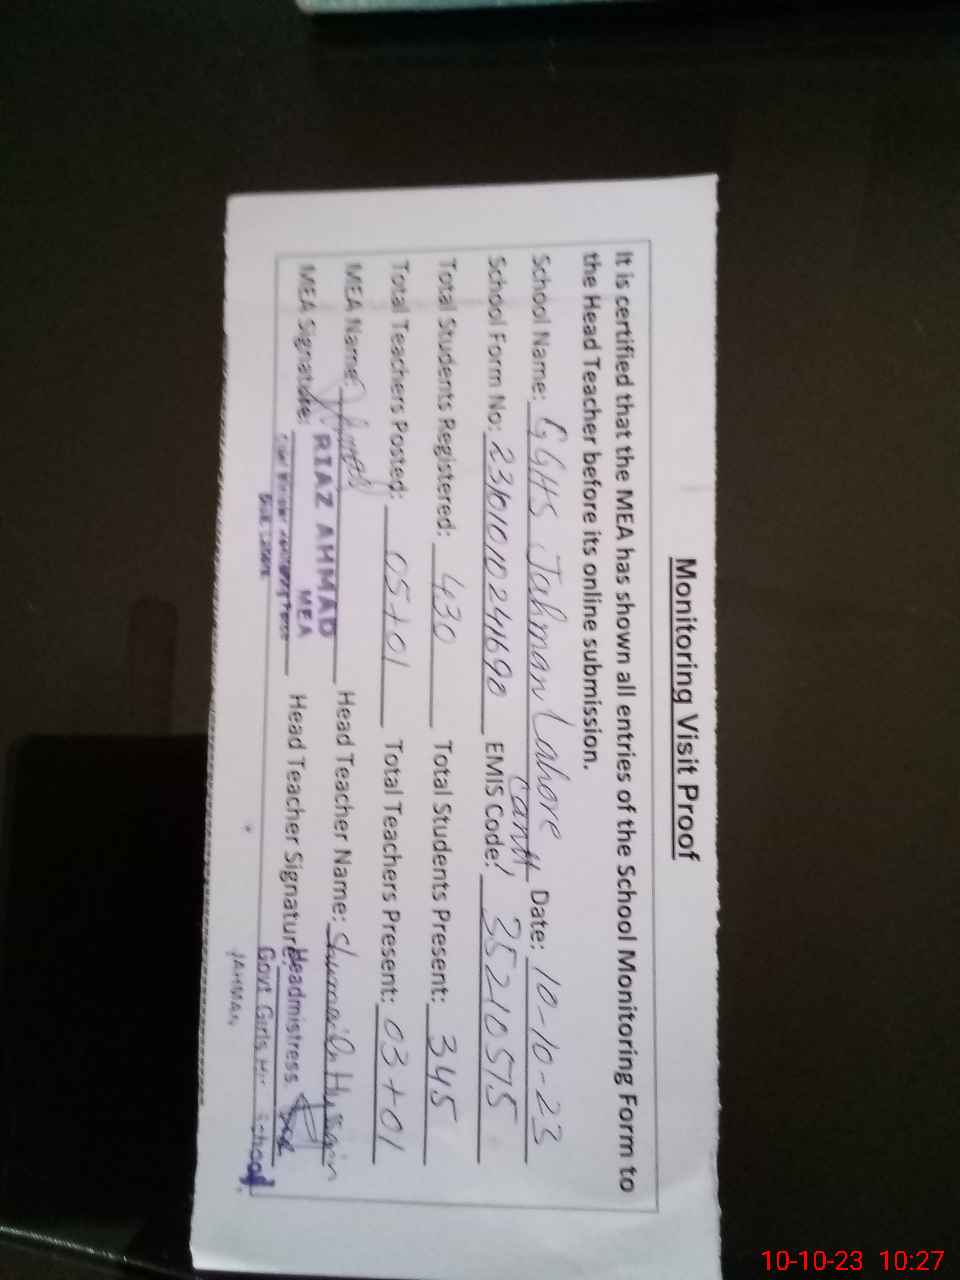 Monitoring Visit Proof
It is certified that the MEA has shown all entries of the School Monitoring Form to
the Head Teacher before its online submission.
School Name: GGHS Jahman Lahore Cantt Date: 10-10-23
School Form No: EMIS Code: 35210515
Total Students Registered: 430 Total Students Present: 345
Total Teachers Posted: 05+01 Total Teachers Present: 03+01
MEA Name: Head Teacher Name:
MEA Signature: RIAZ AHMAD Head Teacher Signature:
MEA
Headmistress
Govt Girls School
JAHMAN
10-10-23 10:27